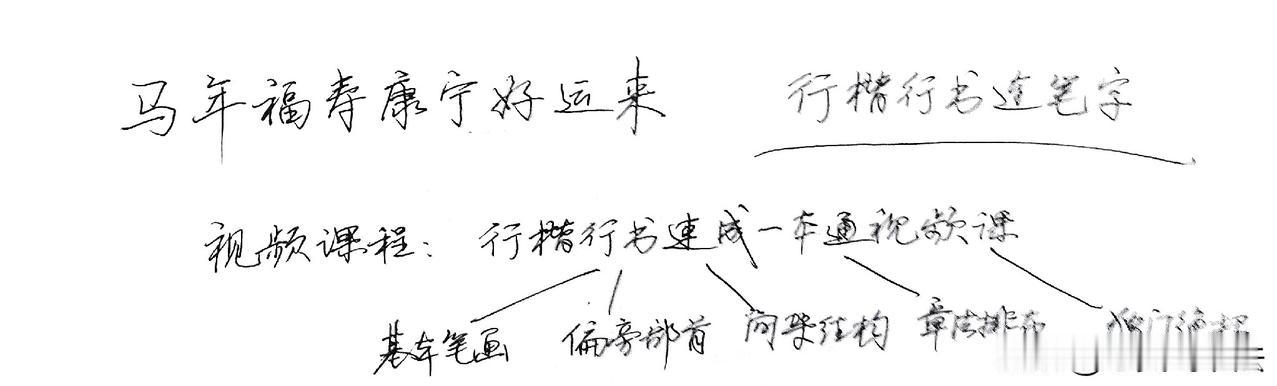 马年福寿康宁好运来 行楷行书连笔字
视频课程：行楷行书速成一本通视频课
基本笔画 偏旁部首 间架结构 章法排布 独门